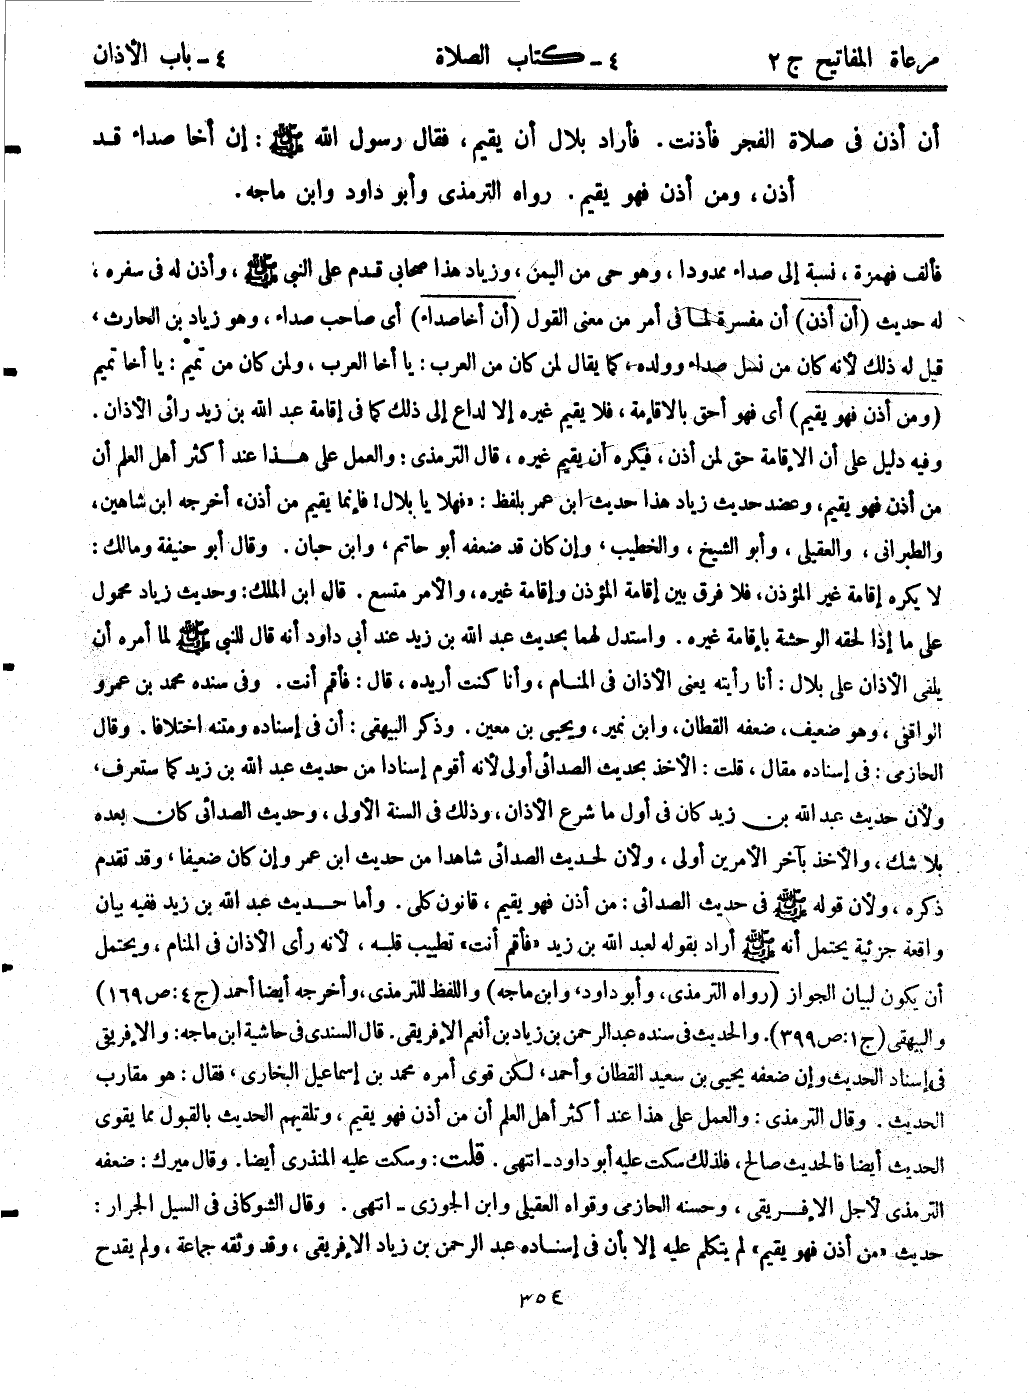 مرعاة المفاتيح ج ٢
٤ - كتاب الصلاة
٤ - باب الأذان
أن أذن فى صلاة الفجر فأذنت. فأراد بلال أن يقيم، فقال رسول الله ﷺ: إن أخا صداء قد
أذن، ومن أذن فهو يقيم. رواه الترمذى وأبو داود وابن ماجه.
فألف فهمزة، نسبة إلى صداء ممدودا، وهو حى من اليمن، وزياد هذا صحابى قدم على النبى ﷺ، وأذن له فى سفره،
له حديث (أن أذن) أن مفسرة لما فى أمر من معنى القول (أن أخا صداء) أى صاحب صداء، وهو زياد بن الحارث،
قيل له ذلك لأنه كان من نسل صداء وولده، كما يقال لمن كان من العرب: يا أخا العرب، ولمن كان من تميم: يا أخا تميم
(ومن أذن فهو يقيم) أى فهو أحق بالاقامة، فلا يقيم غيره إلا لداع إلى ذلك كما فى إقامة عبد الله بن زيد رائى الأذان.
وفيه دليل على أن الاقامة حق لمن أذن، فيكره أن يقيم غيره، قال الترمذى: والعمل على هذا عند أكثر أهل العلم أن
من أذن فهو يقيم، وعضد حديث زياد هذا حديث ابن عمر بلفظ: «فهلا يا بلال! فإنما يقيم من أذن» أخرجه ابن شاهين،
والطبرانى، والعقيلى، وأبو الشيخ، والخطيب، وإن كان قد ضعفه أبو حاتم، وابن حبان. وقال أبو حنيفة ومالك:
لا يكره إقامة غير المؤذن، فلا فرق بين إقامة المؤذن وإقامة غيره، والأمر متسع. قال ابن الملك: وحديث زياد محمول
على ما إذا لحقه الوحشة بإقامة غيره. واستدل لهما بحديث عبد الله بن زيد عند أبى داود أنه قال للنبى ﷺ لما أمره أن
يلقى الأذان على بلال: أنا رأيته يعنى الأذان فى المنام، وأنا كنت أريده، قال: فأقم أنت. وفى سنده محمد بن عمرو
الواقفى، وهو ضعيف، ضعفه القطان، وابن نمير، ويحيى بن معين. وذكر البيهقى: أن فى إسناده ومتنه اختلافا. وقال
الحازمى: فى إسناده مقال، قلت: الأخذ بحديث الصدائى أولى لأنه أقوم إسنادا من حديث عبد الله بن زيد كما ستعرف،
ولأن حديث عبد الله بن زيد كان فى أول ما شرع الأذان، وذلك فى السنة الأولى، وحديث الصدائى كان بعده
بلا شك، والأخذ بآخر الأمرين أولى، ولأن لحديث الصدائى شاهدا من حديث ابن عمر وإن كان ضعيفا، وقد تقدم
ذكره، ولأن قوله ﷺ فى حديث الصدائى: من أذن فهو يقيم، قانون كلى. وأما حديث عبد الله بن زيد ففيه بيان
واقعة جزئية يحتمل أنه ﷺ أراد بقوله لعبد الله بن زيد «فأقم أنت» تطييب قلبه، لأنه رأى الأذان فى المنام، ويحتمل
أن يكون لبيان الجواز (رواه الترمذى، وأبو داود، وابن ماجه) واللفظ للترمذى، وأخرجه أيضا أحمد (ج ٤: ص ١٦٩)
والبيهقى (ج ١: ص ٣٩٩). والحديث فى سنده عبد الرحمن بن زياد بن أنعم الإفريقى. قال السندى فى حاشية ابن ماجه: والإفريقى
فى إسناد الحديث وإن ضعفه يحيى بن سعيد القطان وأحمد، لكن قوى أمره محمد بن إسماعيل البخارى، فقال: هو مقارب
الحديث. وقال الترمذى: والعمل على هذا عند أكثر أهل العلم أن من أذن فهو يقيم، وتلقيهم الحديث بالقبول مما يقوى
الحديث أيضا فالحديث صالح، فلذلك سكت عليه أبو داود - انتهى. قلت: وسكت عليه المنذرى أيضا. وقال ميرك: ضعفه
الترمذى لأجل الإفريقى، وحسنه الحازمى وقواه العقيلى وابن الجوزى - انتهى. وقال الشوكانى فى السيل الجرار:
حديث «من أذن فهو يقيم» لم يتكلم عليه إلا بأن فى إسناده عبد الرحمن بن زياد الإفريقى، وقد وثقه جماعة، ولم يقدح
٣٥٤